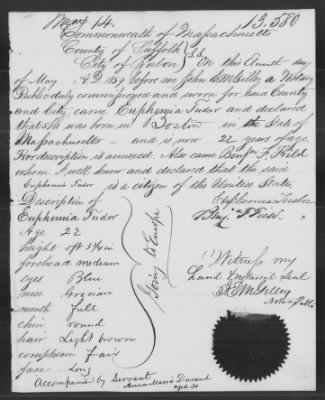 May 14. 13.580
Commonwealth of Massachusetts
County of Suffolk } S.S.
City of Boston On this day
of May A.D. 1859 before me John a Notary
Public duly commissioned and sworn for said County
and City came Euphemia Tudor and declared
that she was born in Boston in the State of
Massachusetts - and is now 22 years of age
Her description is annexed. Also came Benj. F. Field
whom I well know and declared that the said
Euphemia Tudor is a citizen of the United States
Description of Euphemia Tudor
Euphemia Tudor Benj. F. Field
Age 22
height 5 ft
forehead medium
eyes Blue
nose Grecian
mouth full
chin round
hair Light brown
complexion Fair
face Long
Going to Europe
Witness my
hand and seal
Accompanied by Servant
Anna Maria Durand
aged 30